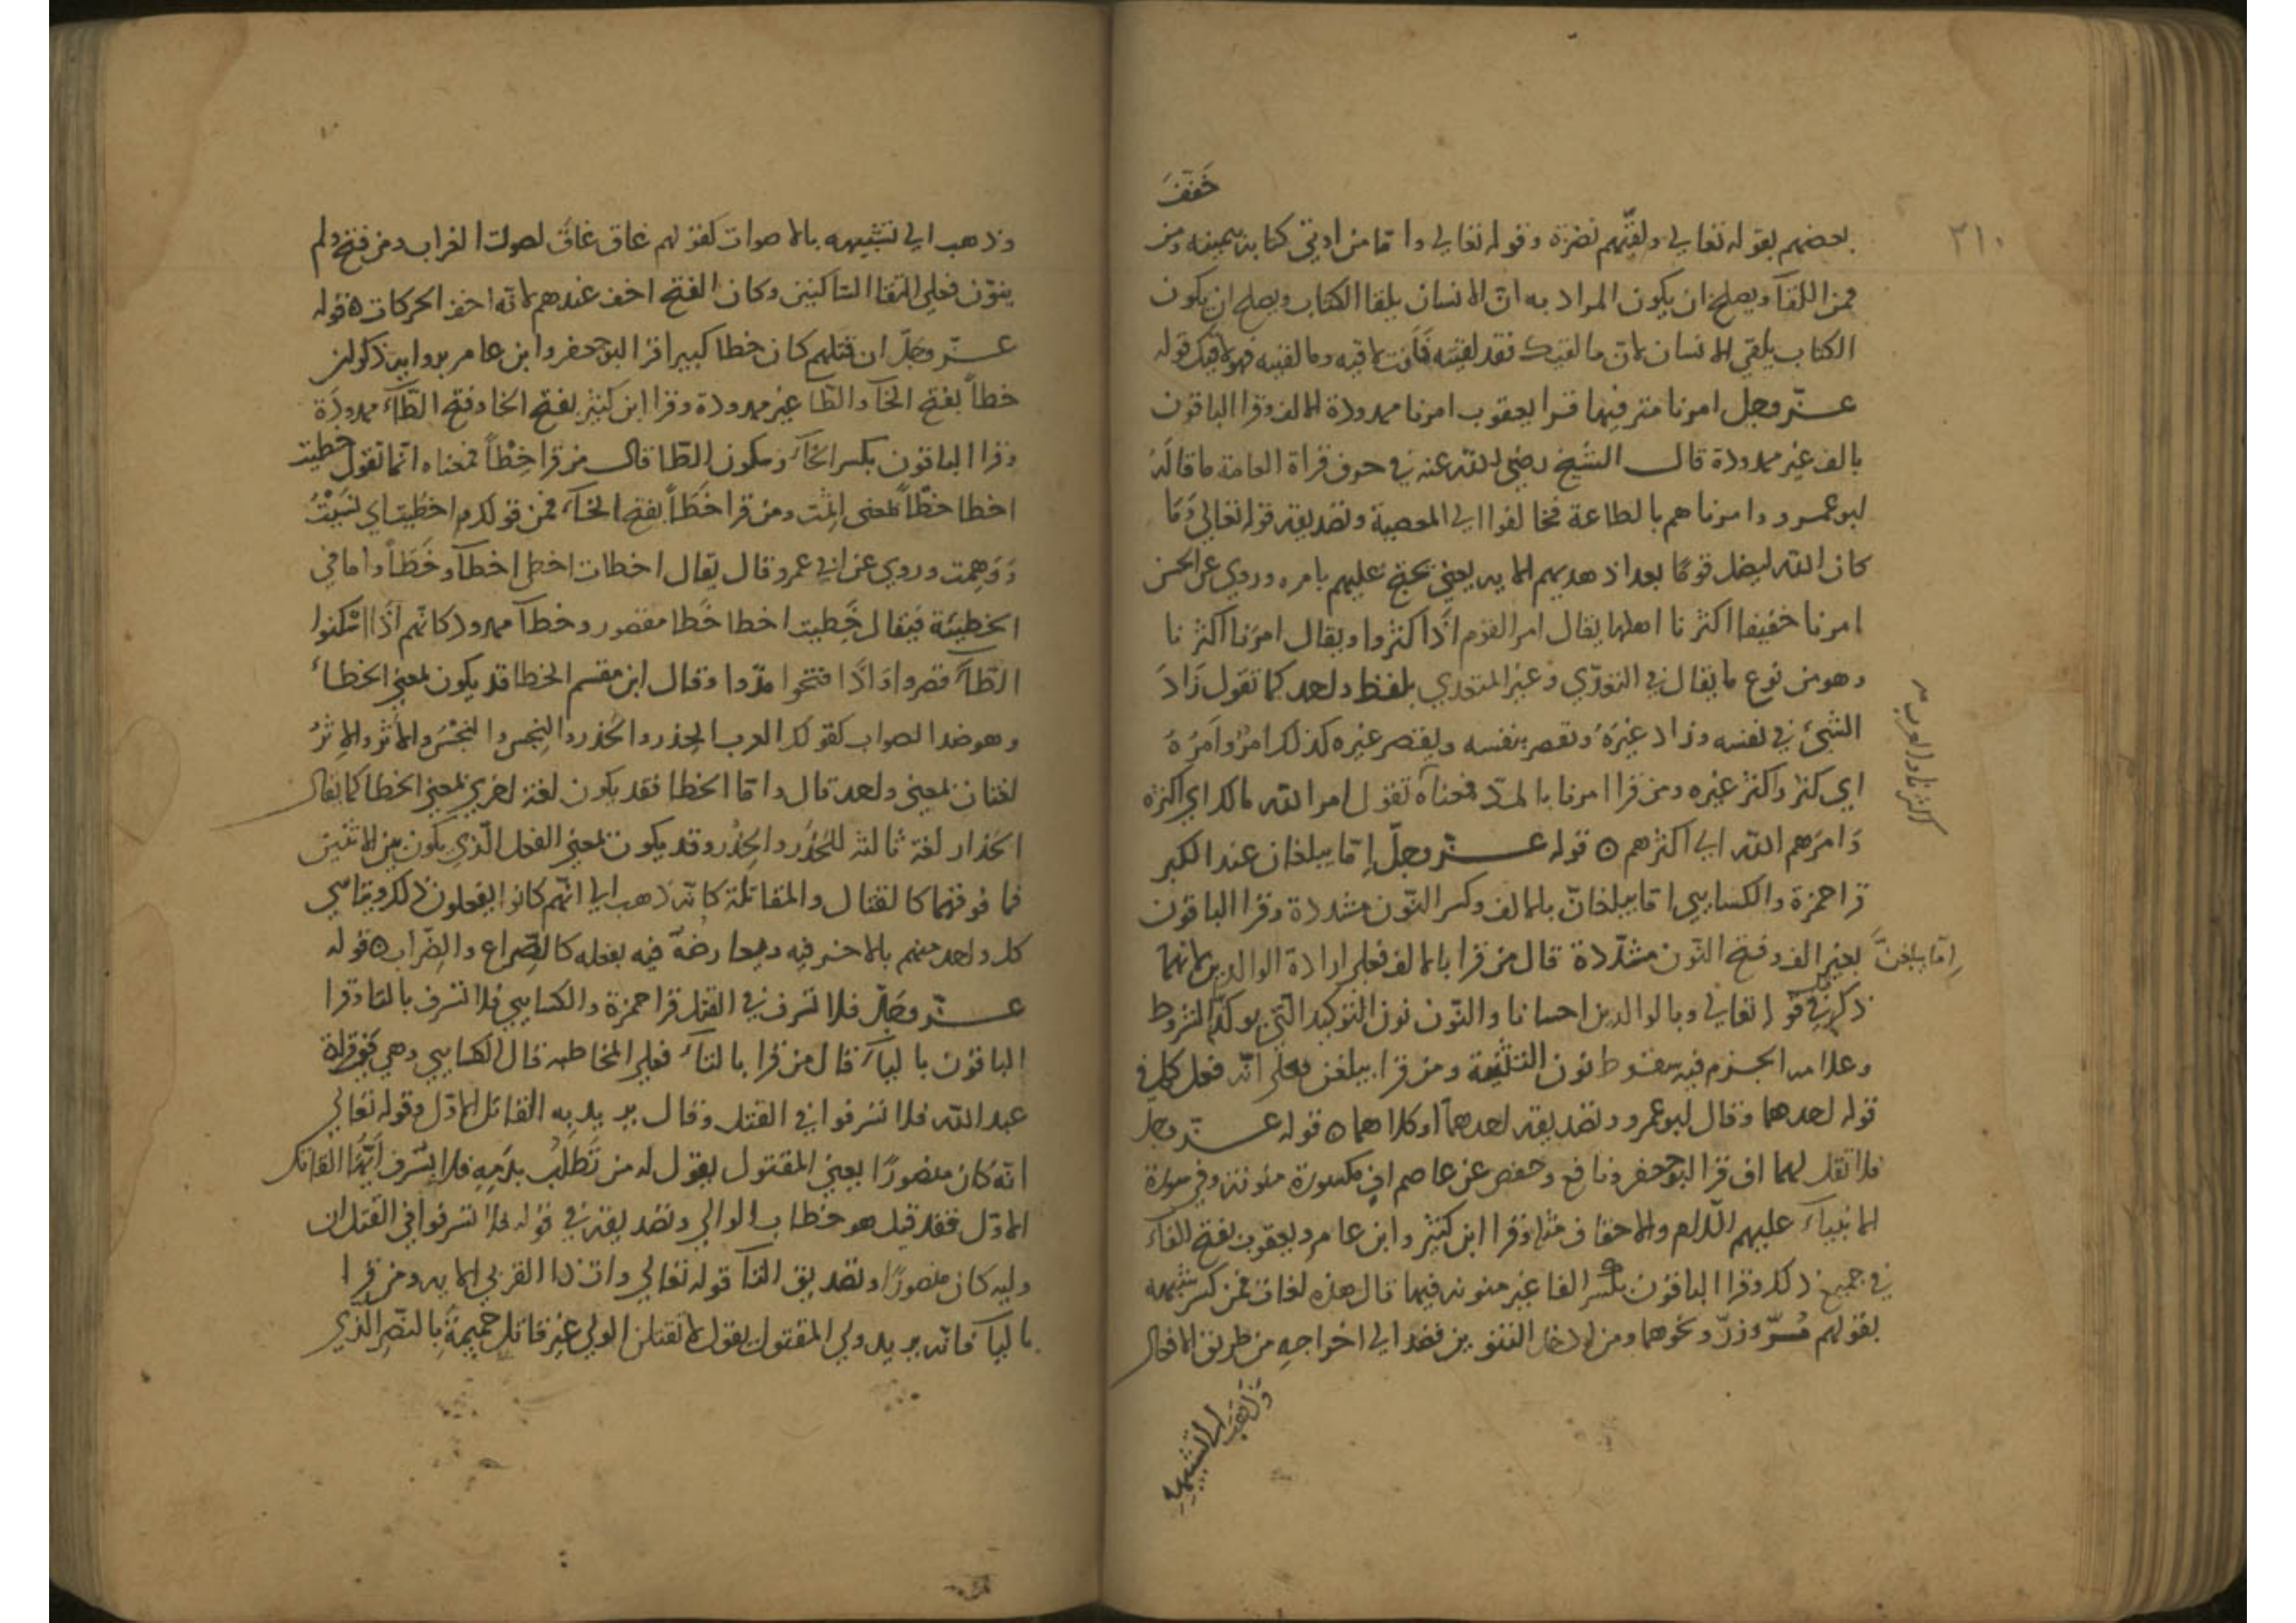 خفف
٢١٠
بعضهم بقوله تعالى ولقّيهم نضرة وقوله تعالى واما من اوتي كتابه بيمينه ومن
فمن اللقآ ويصلح ان يكون المراد به انّ الانسان يلقا الكتاب ويصلح ان يكون
الكتاب يلقي الانسان لانّ ما لقيك فقد لقيته فانت لاقيه وما لقيته فهو لاقيك قوله
عزّ وجل امرنا مترفيها قرا يعقوب امرنا ممدودة الالف وقرا الباقون
بالف غير ممدودة قال الشيخ رضي الله عنه في حرف قراة العامة ما قاله
ابو عمرو وامرناهم بالطاعة فخالفوا الى المعصية وتصديقه قوله تعالى وَمَا
كان الله ليضل قومًا بعد اذ هديهم الايه يعني يحتج عليهم بامره وروي عن الحسن
امرنا خفيفا اكثرنا اهلها يقال امر القوم اذا كثروا ويقال امرنا اكثرنا
وهو من نوع ما يقال في التعدّي وغير المتعدي بلفظ واحد كما تقول زَادَ
الشئ في نفسه وزاد غيرَهُ ونقص بنفسه وينقص غيره كذلك امر وامَرَهُ
اي كثر واكثر غيره ومن قرا امرنا بالمدّ فمعناه تقول امر الله مالك اي اكثره
وَامرَهم الله اي اكثرهم ۞ قوله عزّ وجلّ إمّا يبلغان عند الكبر
قرا حمزة والكسايي اما يبلغانّ بالالف وكسر النّون مشددة وقرا الباقون
إمّا يبلغنّ بغير الف وفتح النّون مشدّدة قال من قرا بالالف فعلى ارادة الوالدين لانهما
ذكرا في قوله تعالى وبالوالدين احسانا والنّون نون التوكيد التي يوكّد الشروط
وعلامه الجزم فيه سقوط نون التثنية ومن قرا يبلغن فعلى انّه فعل كما في
قوله احدهما وقال ابو عمرو وتصديقه احدهمآ او كلاهما ۞ قوله عزّ وجل
فلا تقل لهما اف قرا ابو جعفر ونافع وحفص عن عاصم افٍ مكسورة منونة وفي سورة
الانبيآء عليهم السّلام والاحقاف مثله وقرا ابن كثير وابن عامر ويعقوب بفتح الفآء
في جميع ذلك وقرا الباقون بكسر الفا غير منونه فيها قال هذه لغات فمن كسر شبهه
بقولهم مُسّر وزرّ ونحوهما ومن ادخل التنوين فقد الى اخراجه من طريق الافعال
وذهب الى تشبيهه
وذهب الى تشبيهه بالاصوات كقولهم غاق غاقٍ لصوت الغراب ومن فتح ولم
ينوّن فعلى التقا السّاكنين وكان الفتح اخف عندهم لانّه اخف الحركات ۞ قوله
عزّ وجلّ ان قتلهم كان خطا كبيرا قرا ابو جعفر وابن عامر بروايه ذكوان
خطاً بفتح الخآ والطّا غير ممدودة وقرا ابن كثير بفتح الخا وفتح الطّاء ممدودة
وقرا الباقون بكسر الخآء وسكون الطّا قال من قرا خِطْاً فمعناه اثما تقول خطيت
اخطا خطْاً بمعنى اثمت ومن قرا خَطَاً بفتح الخآء فمن قولكم اخطيت اي نسَيْتُ
وَوَهِمت وروي عن ابي عمرو قال يقال اخطات اخطى اخطآ وخَطَاً واما في
الخطيئة فيقال خَطِيت اخطا خَطا مقصور وخطآ ممدود كانّهم اذا اسكنوا
الطّآء قصروا وَاذا فتحوا مدّوا وقال ابن مقسم الخطا قد يكون بمعنى الخطاء
وهو ضد الصواب كقولك العرب الحِذر والحَذر والنِجس والنَجَسُ والاَثر والاِثرُ
لغتان بمعنى واحد قال وامّا الخطا فقد يكون لغة اخرى بمعنى الخطا كما يقال
الحَذار لغة ثالثه للحَذَر والحِذْر وقد يكون بمعنى الفعل الّذي يكون بين الاثنين
فما فوقهما كالقتال والمقاتلة كانّه ذهب الى انّهم كانوا يفعلون ذلك ويتاسي
كل واحد منهم بالاخر فيه ويعارضهُ فيه بفعله كالصّراع والضّراب ۞ قوله
عزّ وجَلّ فلا تسرف في القتل قرا حمزة والكسايي فلا تسرف بالتا وقرا
الباقون باليآء قال من قرا بالتآء فعلى المخاطبه قال الكسايي وهي في قراة
عبد الله فلا تسرفوا في القتل وقال يريد به القاتل الاوّل وقوله تعالى
انّه كان منصورًا يعني المقتول يقول له من تَطَلَبُ بدَمِهِ فلا يسرف ايّها القاتل
الاوّل فقد قيل هو خطاب الوالي وتصديقه في قوله فلا تسرفوا في القتل ان
وليه كان منصورًا وتصديق التآ قوله تعالى وات ذا القربى الايه ومن قرا
باليآ فانّه يريد ولي المقتول يقول لا تقتلن الولي غير قاتل حميمهُ بالنصر الّذي